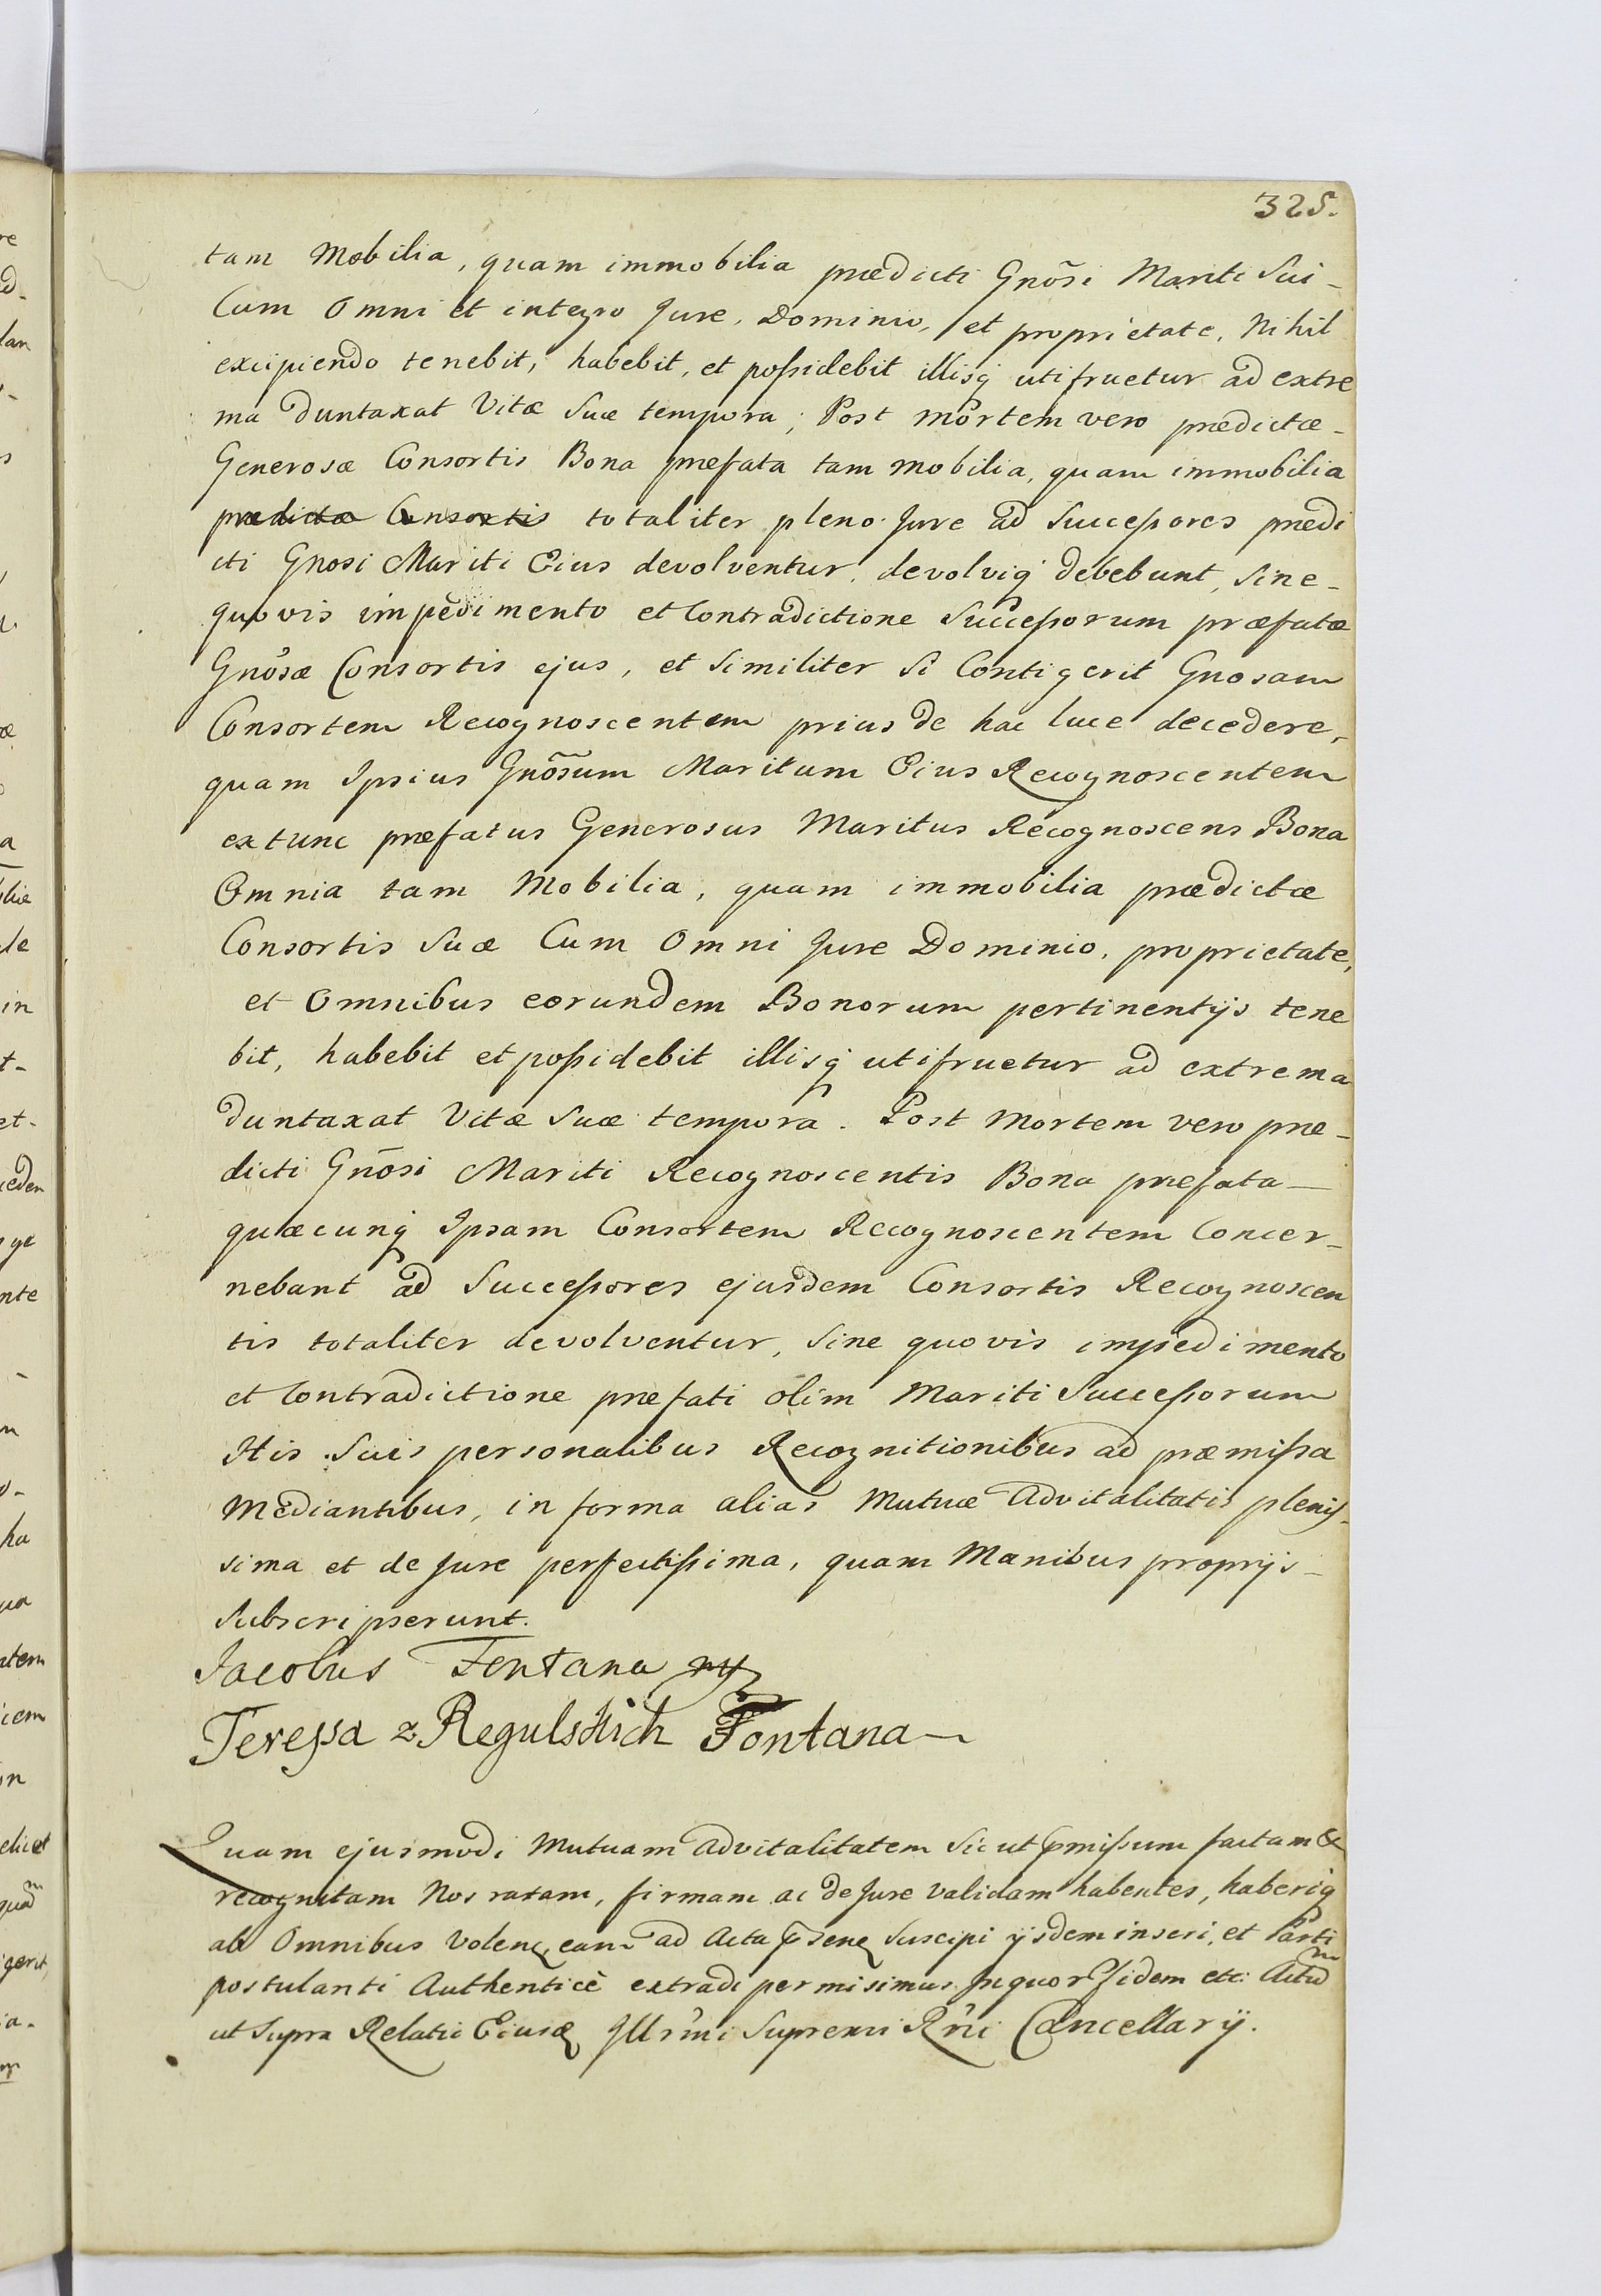 325.
tam Mobilia, quam immobilia prædicti Gnõsi Mariti Sui_
Cum Omni et integro Jure, Dominio, et proprietate, Nihil
excipiendo tenebit, habebit, et poßidebit illisq utifruetur ad extre
ma duntaxat Vitæ Suæ tempora; Post mortem vero prædictæ_
Generosæ Consortis Bona præfata tam mobilia, quam immobilia
prædictæ Consortis totaliter pleno Jure ad Succeßores prædi
cti Gnosi Mariti Eius devolventur, devolviq debebunt, Sine_
quovis impedimento et Contradictione Succeßorum præfatæ
Gnõsæ Consortis ejus, et Similiter Si Contigerit Gnosam
Consortem Recognoscentem prius de hac luce decedere,
quam Ipsius Gnõsum Maritum Eius Recognoscentem
extunc præfatus Generosus Maritus Recognoscens Bona
Omnia tam Mobilia, quam immobilia prædictæ
Consortis Suæ Cum Omni Jure Dominio, proprietate,
et Omnibus eorundem Bonorum pertinentijs tene
bit, habebit et poßidebit illisq utifruetur ad extrema
duntaxat Vitæ Suæ tempora. Post Mortem vero præ_
dicti Gñosi Mariti Recognoscentis Bona præfata_
quæcunq Ipsam Consortem Recognoscentem Concer_
nebant ad Succeßores ejusdem Consortis Recognoscen
tis totaliter devolventur, Sine quovis impedimento
et Contradictione præfati olim Mariti Succeßorum
His Suis personalibus Recognitionibus ad præmißa
Mediantibus, in forma alias Mutuæ Advitalitatis pleniß_
sima et de Jure perfectißima, quam Manibus proprijs_
Subscripserunt.
Jacobus Fontana
Tereßa z Regulskich Fontana
Quam ejusmodi Mutuam Advitalitatem Sic ut pmißum factam &
recognitam Nos ratam, firmam ac de Jure Validam habentes, haberiq
ab Omnibus Volen, eam ad Acta psen Suscipi ijsdem inseri, et Parti
postulanti Authenticè extradi permisimus Inquor fidem etc: Actum
ut Supra Relatio Eiusd Illrmi Supremi Rñi Cancellarij.